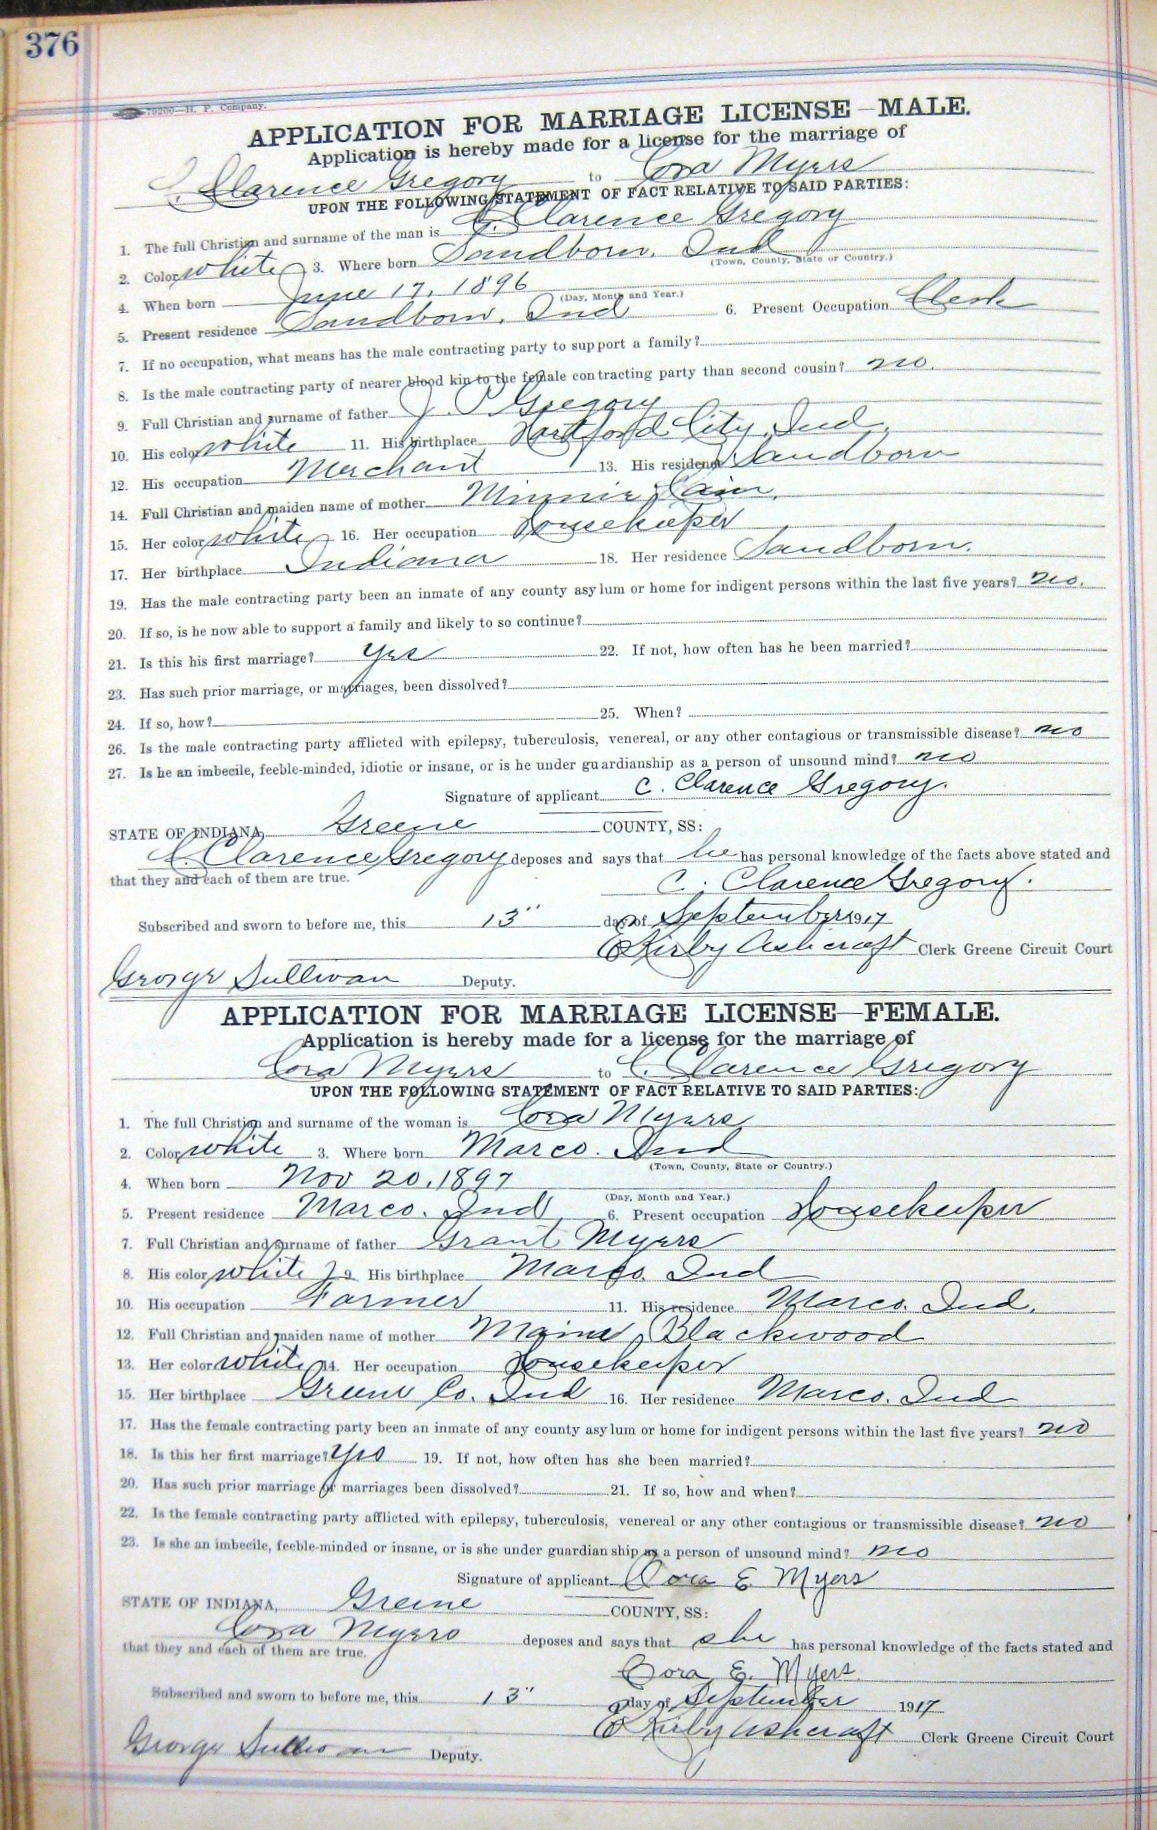 376
79200—H. P. Company.
APPLICATION FOR MARRIAGE LICENSE—MALE.
Application is hereby made for a license for the marriage of
C. Clarence Gregory to Cora Myers
UPON THE FOLLOWING STATEMENT OF FACT RELATIVE TO SAID PARTIES:
1. The full Christian and surname of the man is C. Clarence Gregory
2. Color white 3. Where born Sandborn, Ind
(Town, County, State or Country.)
4. When born June 17, 1896
(Day, Month and Year.)
5. Present residence Sandborn, Ind 6. Present Occupation Clerk
7. If no occupation, what means has the male contracting party to support a family?
8. Is the male contracting party of nearer blood kin to the female contracting party than second cousin? no.
9. Full Christian and surname of father J. P. Gregory
10. His color white 11. His birthplace Hartford City, Ind.
12. His occupation Merchant 13. His residence Sandborn
14. Full Christian and maiden name of mother Minnie Cain.
15. Her color white 16. Her occupation Housekeeper
17. Her birthplace Indiana 18. Her residence Sandborn.
19. Has the male contracting party been an inmate of any county asylum or home for indigent persons within the last five years? no.
20. If so, is he now able to support a family and likely to so continue?
21. Is this his first marriage? yes 22. If not, how often has he been married?
23. Has such prior marriage, or marriages, been dissolved?
24. If so, how? 25. When?
26. Is the male contracting party afflicted with epilepsy, tuberculosis, venereal, or any other contagious or transmissible disease? no
27. Is he an imbecile, feeble-minded, idiotic or insane, or is he under guardianship as a person of unsound mind? no
Signature of applicant C. Clarence Gregory.
STATE OF INDIANA, Greene COUNTY, SS:
C. Clarence Gregory deposes and says that he has personal knowledge of the facts above stated and
that they and each of them are true.
C. Clarence Gregory.
Subscribed and sworn to before me, this 13" day of September 1917
E Kirby Ashcraft Clerk Greene Circuit Court
George Sullivan Deputy.
APPLICATION FOR MARRIAGE LICENSE—FEMALE.
Application is hereby made for a license for the marriage of
Cora Myers to C. Clarence Gregory
UPON THE FOLLOWING STATEMENT OF FACT RELATIVE TO SAID PARTIES:
1. The full Christian and surname of the woman is Cora Myers
2. Color white 3. Where born Marco. Ind
(Town, County, State or Country.)
4. When born Nov 20, 1897
(Day, Month and Year.)
5. Present residence Marco. Ind 6. Present occupation Housekeeper
7. Full Christian and surname of father Grant Myers
8. His color white 9. His birthplace Marco. Ind
10. His occupation Farmer 11. His residence Marco. Ind.
12. Full Christian and maiden name of mother Blackwood
13. Her color white 14. Her occupation Housekeeper
15. Her birthplace Greene Co. Ind 16. Her residence Marco. Ind
17. Has the female contracting party been an inmate of any county asylum or home for indigent persons within the last five years? no
18. Is this her first marriage? yes 19. If not, how often has she been married?
20. Has such prior marriage or marriages been dissolved? 21. If so, how and when?
22. Is the female contracting party afflicted with epilepsy, tuberculosis, venereal or any other contagious or transmissible disease? no
23. Is she an imbecile, feeble-minded or insane, or is she under guardianship as a person of unsound mind? no
Signature of applicant Cora E. Myers
STATE OF INDIANA, Greene COUNTY, SS:
Cora Myers deposes and says that she has personal knowledge of the facts stated and
that they and each of them are true.
Cora E. Myers
Subscribed and sworn to before me, this 13" day of September 1917
E Kirby Ashcraft Clerk Greene Circuit Court
George Sullivan Deputy.